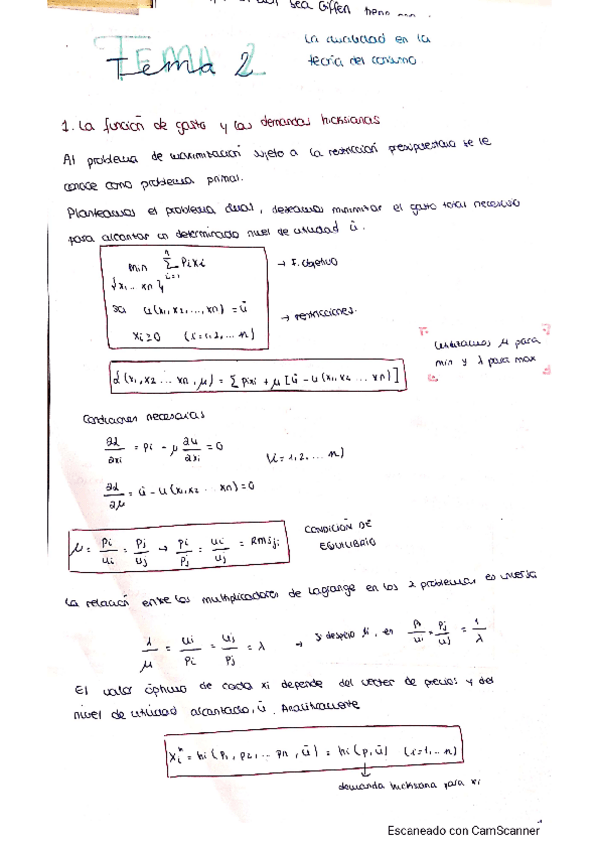 sea Giffen tiene
Tema 2
La dualidad en la
teoría del consumo
1. La función de gasto y las demandas hicksianas
Al problema de maximización sujeto a la restricción presupuestaria se le
conoce como problema primal.
Planteamos el problema dual, deseamos minimizar el gasto total necesario
para alcanzar un determinado nivel de utilidad ū.
min Σ pixi → F. objetivo
i=1
{x1...xn}
sa u(x1, x2, ..., xn) = ū
→ restricciones.
xi ≥ 0 (i=1,2,...n)
utilizamos μ para
min y λ para max
L(x1, x2 ... xn, μ) = Σ pixi + μ [ū - u(x1, x2 ... xn)]
Condiciones necesarias
∂L/∂xi = pi - μ ∂u/∂xi = 0 (i=1,2,...n)
∂L/∂μ = ū - u(x1, x2 ... xn) = 0
μ = pi/ui = pj/uj → pi/pj = ui/uj = RMSji
CONDICIÓN DE
EQUILIBRIO
La relación entre los multiplicadores de Lagrange en los 2 problemas es inversa
1/μ = ui/pi = uj/pj = λ → si despejo μ, en pi/ui = pj/uj = 1/λ
El valor óptimo de cada xi depende del vector de precios y del
nivel de utilidad alcanzado, ū. Analíticamente
xi* = hi(p1, p2, ... pn, ū) = hi(p, ū) (i=1,...n)
demanda hicksiana para xi
Escaneado con CamScanner